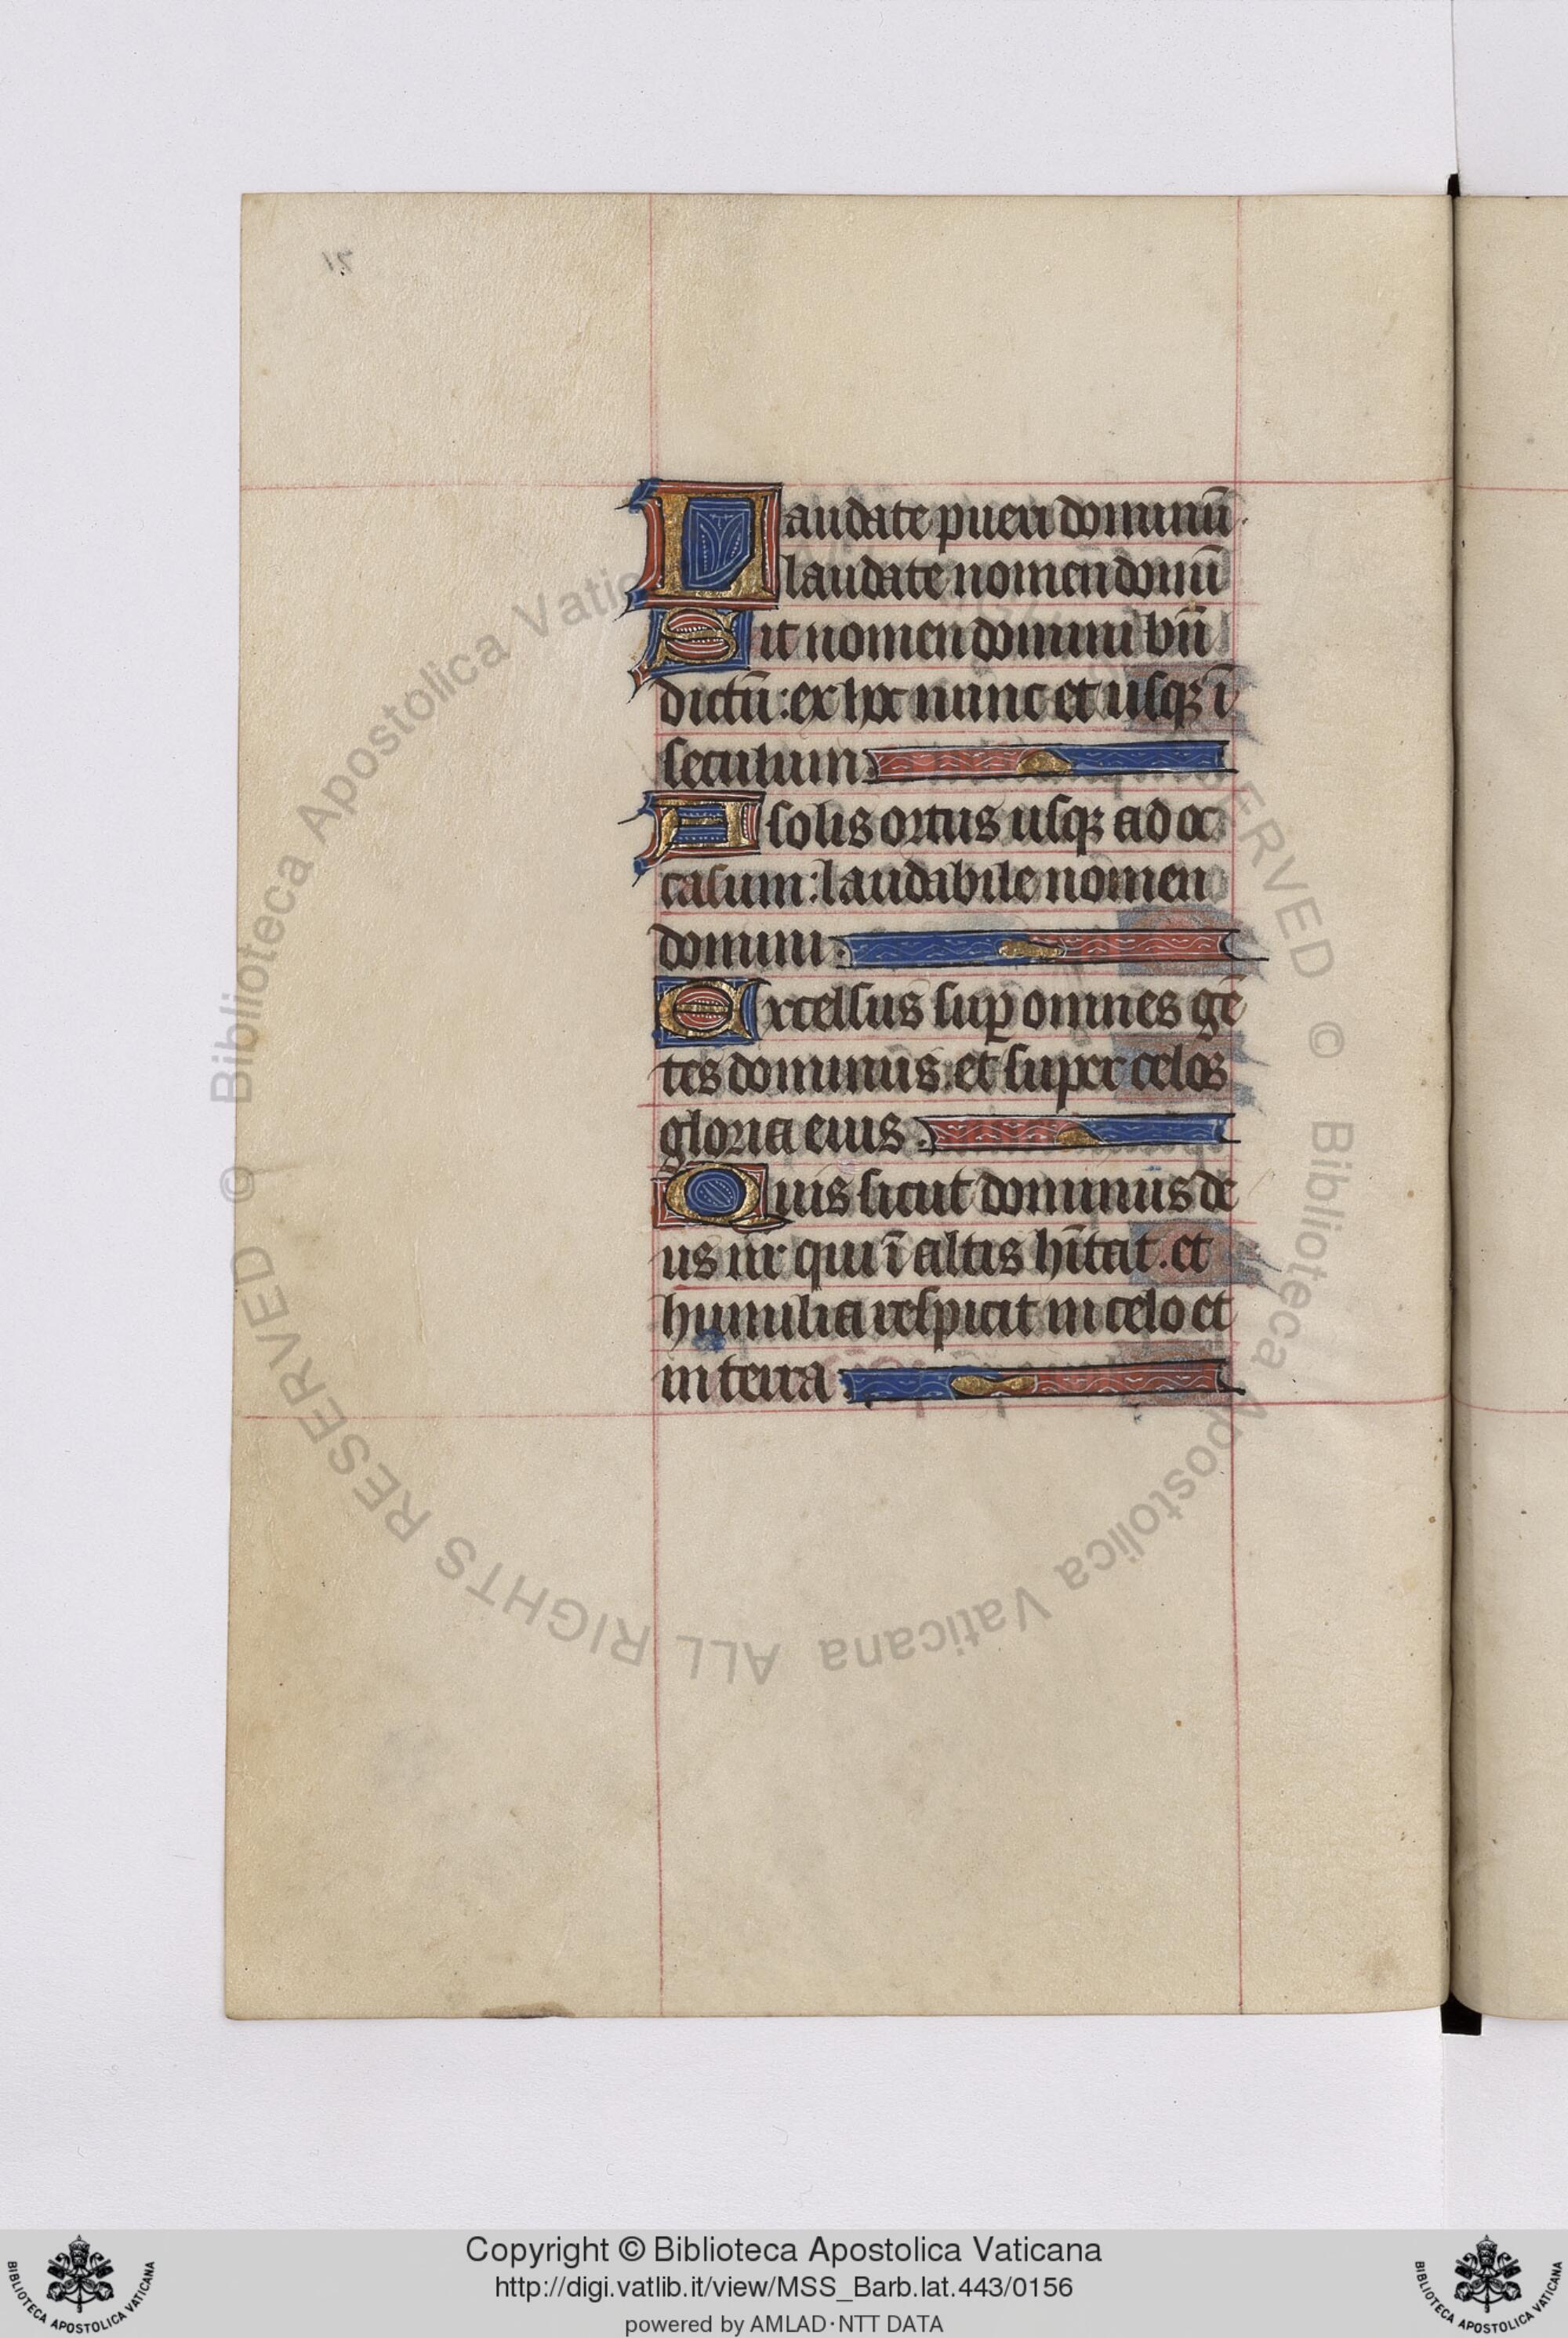 Laudate pueri dominū.
laudate nomen domī
Sit nomen domini bn̄
dictū: ex hoc nunc et usqꝫ ī
seculum.
A solis ortus usqꝫ ad oc
casum: laudabile nomen
domini.
Excelsus suꝑ omnes gē
tes dominus: et super celos
gloria eius.
Quis sicut dominus de
us nr̄ qui ī altis hītat. et
humilia respicit in celo et
in terra
© Biblioteca Apostolica Vaticana ALL RIGHTS RESERVED © Biblioteca Apostolica Vaticana ALL RIGHTS RESERVED
Copyright © Biblioteca Apostolica Vaticana
http://digi.vatlib.it/view/MSS_Barb.lat.443/0156
powered by AMLAD·NTT DATA
BIBLIOTECA APOSTOLICA VATICANA
BIBLIOTECA APOSTOLICA VATICANA